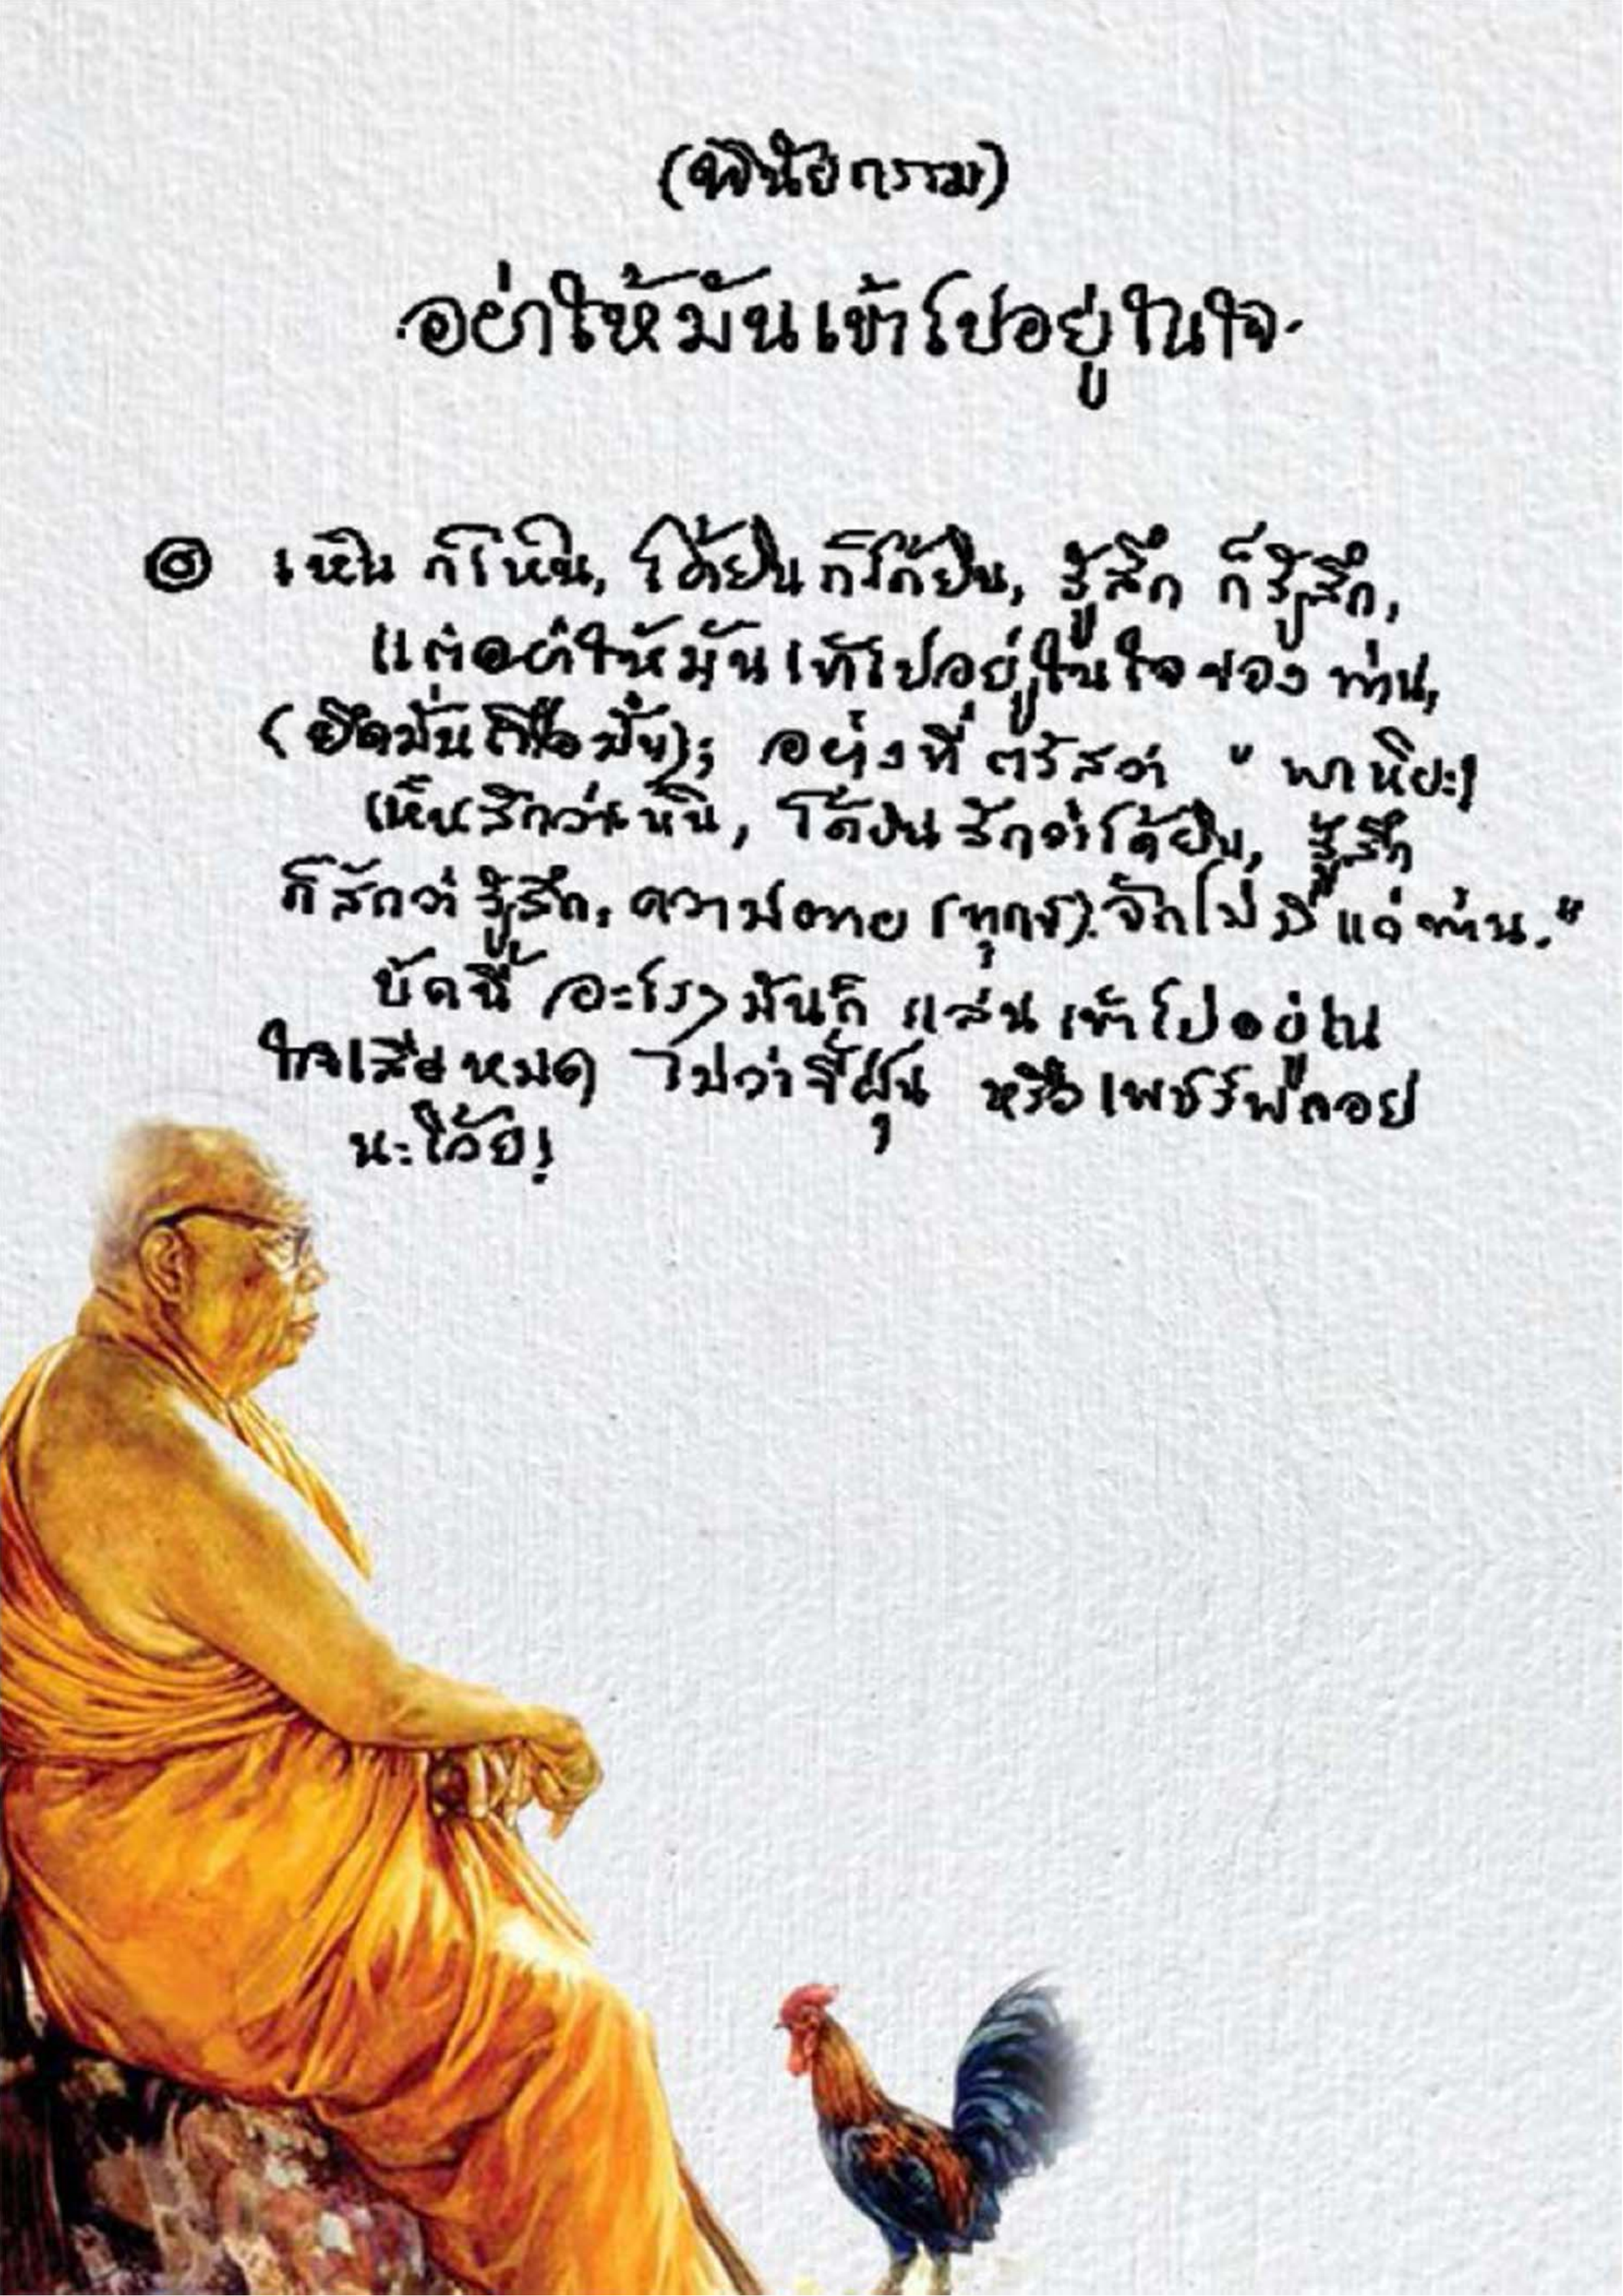 (พินัยกรรม)
อย่าให้มันเข้าไปอยู่ในใจ
๏ เห็น ก็เห็น, ได้ยิน ก็ได้ยิน, รู้สึก ก็รู้สึก,
แต่อย่าให้มันเข้าไปอยู่ในใจของ ท่าน,
(ยึดมั่นถือมั่น); อย่างที่ ตรัสว่า " พาหิยะ!
เห็นสักว่าเห็น, ได้ยิน สักว่าได้ยิน, รู้สึก
ก็สักว่า รู้สึก, ความตาย (ทุกข์) จักไม่ มี แก่ ท่าน."
บัดนี้ อะไรๆ มันก็ แล่น เข้าไปอยู่ใน
ใจเสียหมด ไม่ว่าขี้ฝุ่น หรือเพชร์พลอย
นะโว้ย!